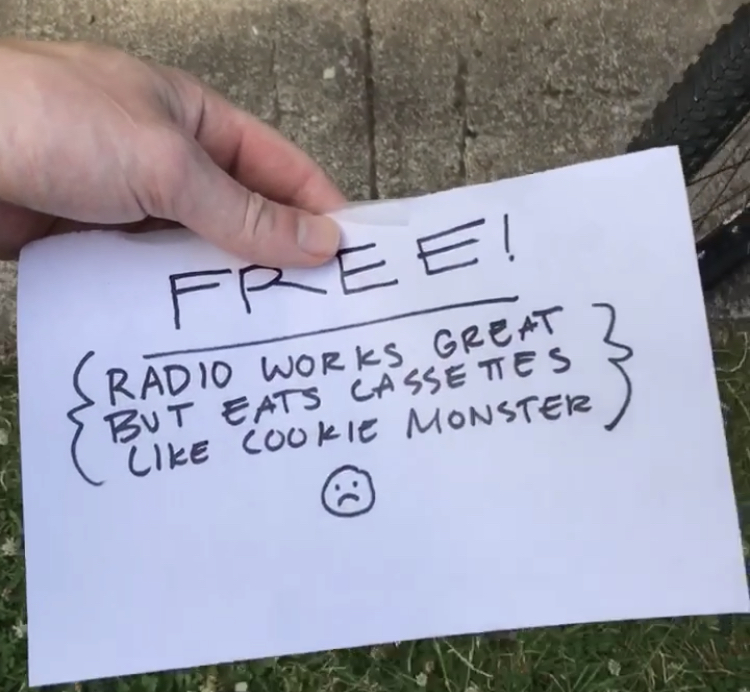 FREE!
RADIO WORKS GREAT
BUT EATS CASSETTES
LIKE COOKIE MONSTER